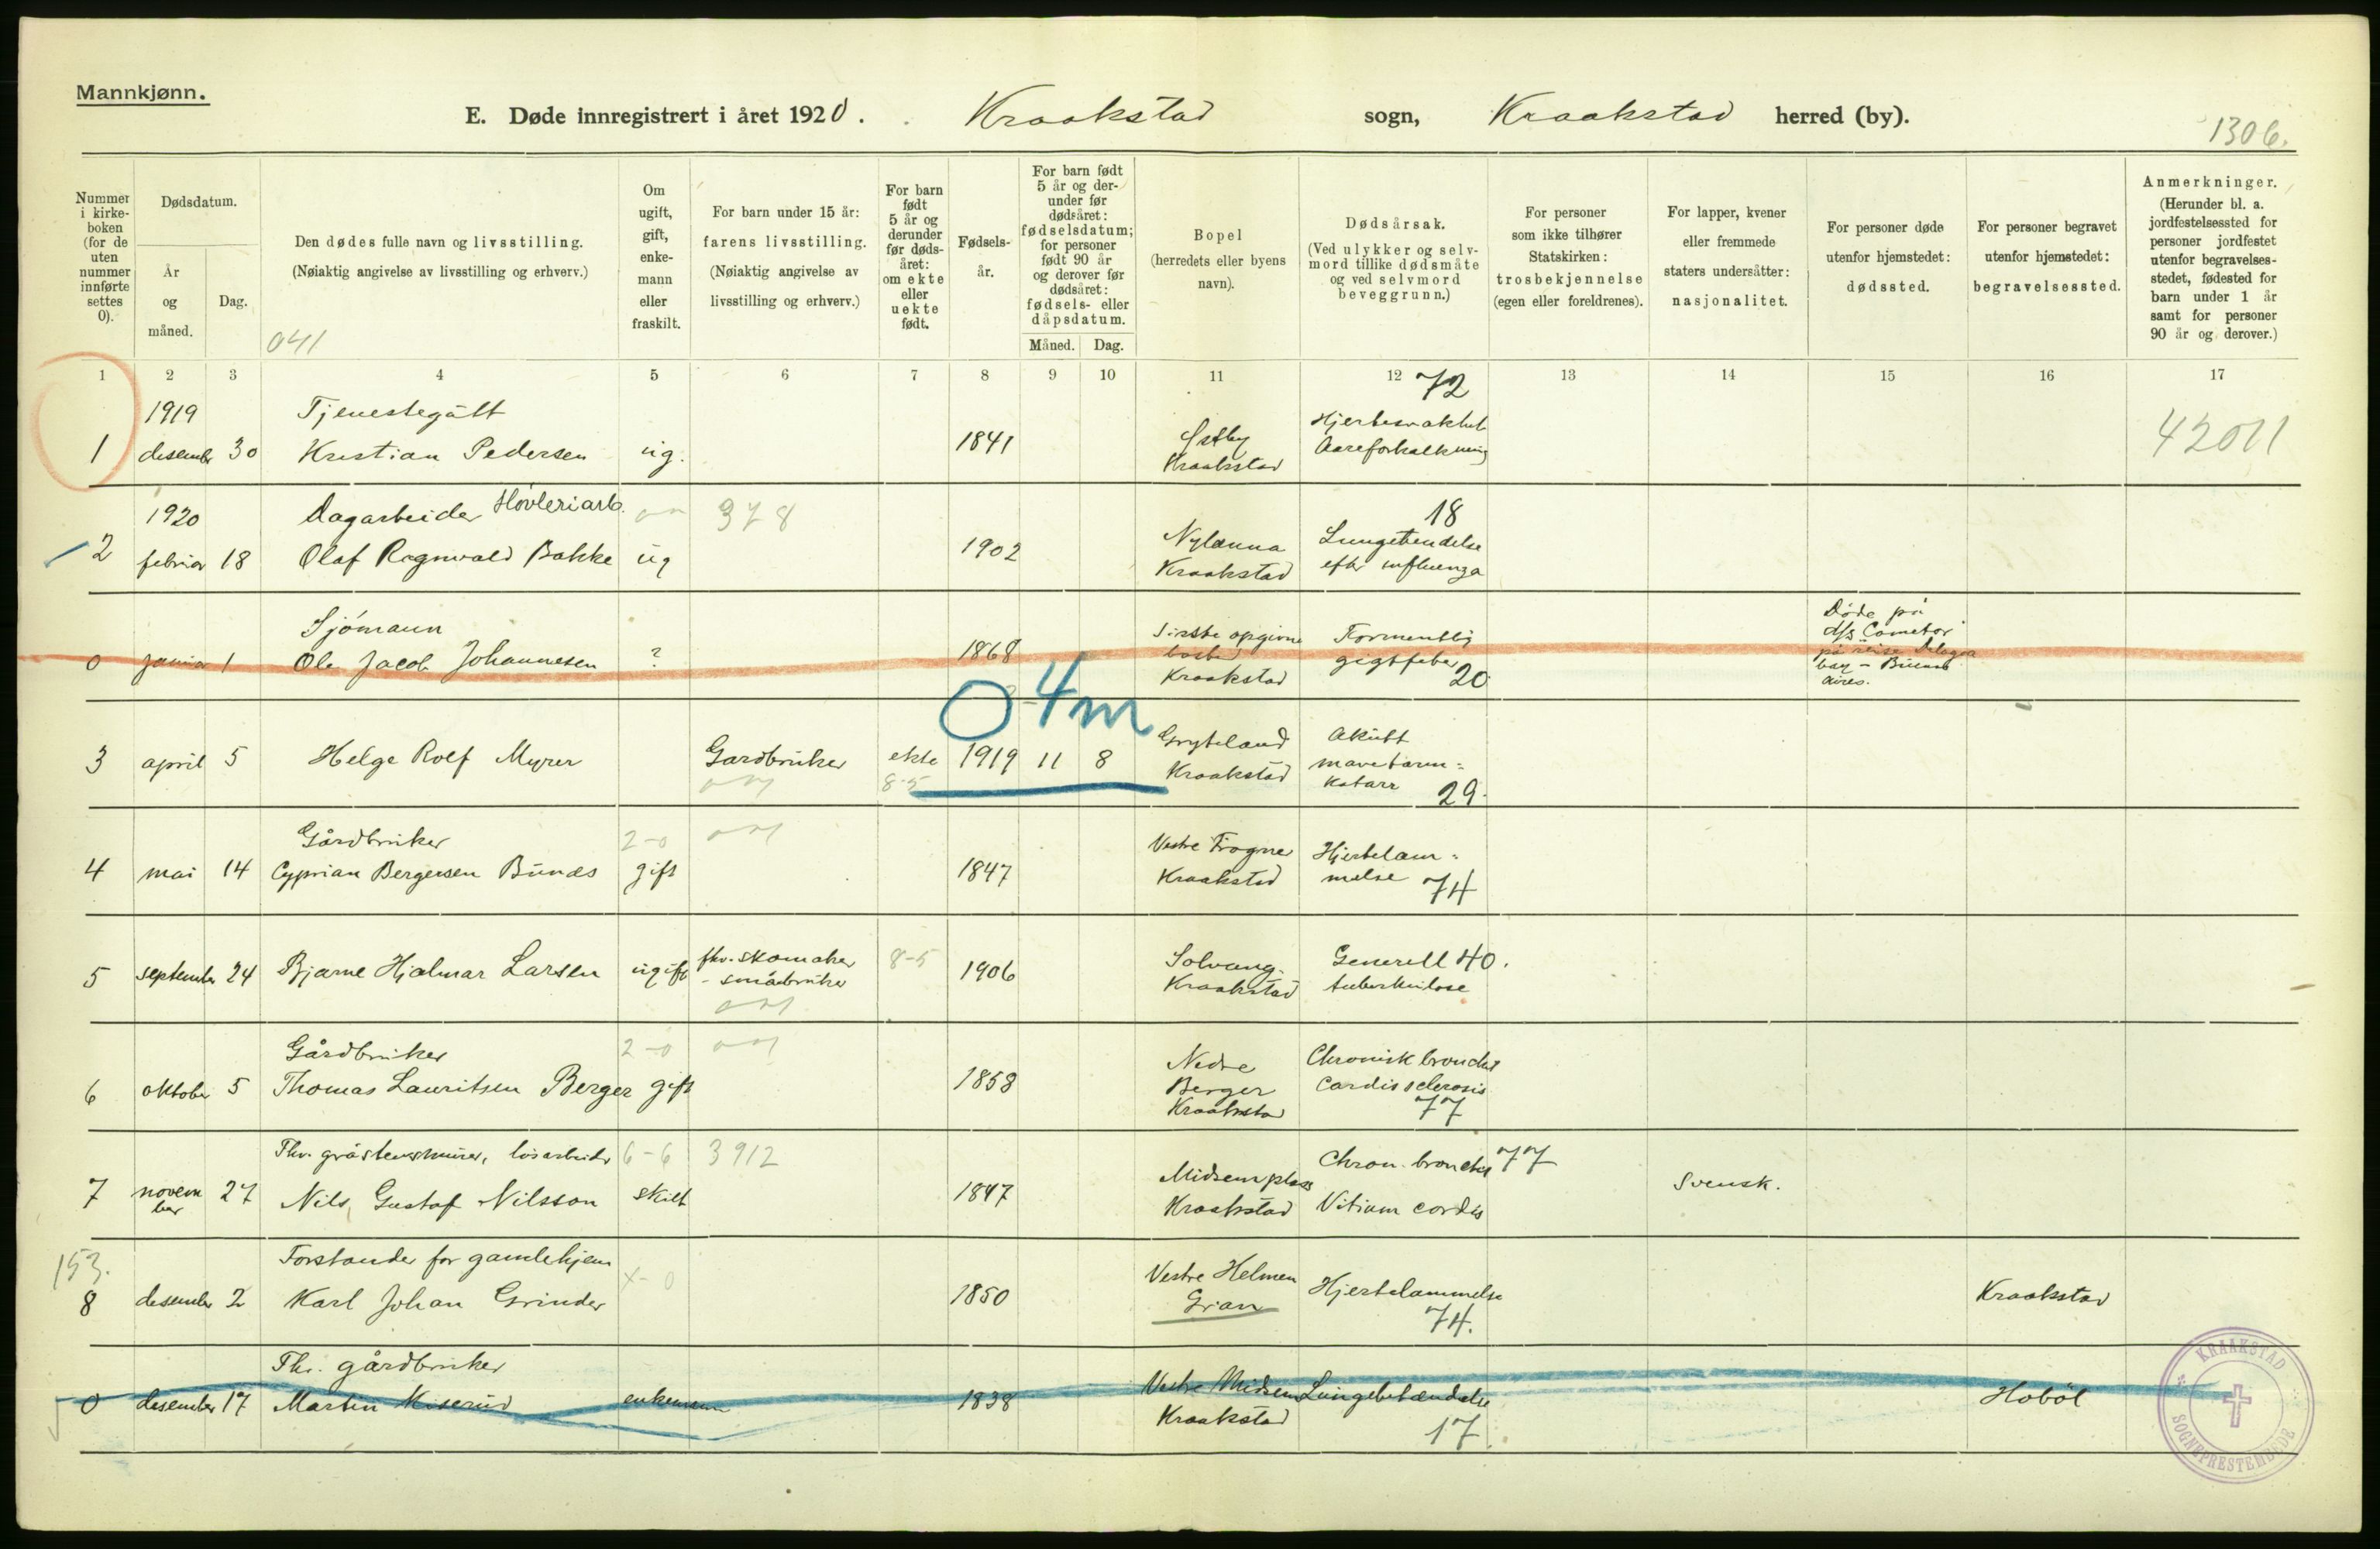 Mannkjønn.
E. Døde innregistrert i året 1920. Kraakstad sogn, Kraakstad herred (by).
1306.
Nummer i kirke-boken (for de uten nummer innførte settes 0).
Dødsdatum.
År og måned.
Dag.
Den dødes fulle navn og livsstilling.
(Nøiaktig angivelse av livsstilling og erhverv.)
041
Om ugift, gift, enke-mann eller fraskilt.
For barn under 15 år:
farens livsstilling.
(Nøiaktig angivelse av
livsstilling og erhverv.)
For barn født 5 år og derunder før døds-året: om ekte eller uekte født.
Fødsels-år.
For barn født 5 år og der-under før dødsåret: fødselsdatum; for personer født 90 år og derover før dødsåret: fødsels- eller dåpsdatum.
Måned. Dag.
Bopel
(herredets eller byens
navn).
Dødsårsak.
(Ved ulykker og selv-
mord tillike dødsmåte
og ved selvmord
beveggrunn.)
For personer
som ikke tilhører
Statskirken:
trosbekjennelse
(egen eller foreldrenes).
For lapper, kvener
eller fremmede
staters undersåtter:
nasjonalitet.
For personer døde
utenfor hjemstedet:
dødssted.
For personer begravet
utenfor hjemstedet:
begravelsessted.
Anmerkninger.
(Herunder bl. a.
jordfestelsessted for
personer jordfestet
utenfor begravelses-
stedet, fødested for
barn under 1 år
samt for personer
90 år og derover.)
1 2 3 4 5 6 7 8 9 10 11 12 13 14 15 16 17
72
1919 Tjenestegutt Hjertesvakhet
1 desember 30 Kristian Pedersen ug. 1841 Østby Aareforkalkning 42011
Kraakstad
1920 Dagarbeider Høvleriarb. 378 18
2 februar 18 Olaf Ragnvald Bakke ug 1902 Nylænna Lungebetendelse
Kraakstad efter influenza
Sjómann Sidste opgivne Formentlig Døde på
0 januar 1 Ole Jacob Johannesen ? 1868 bosted gigtfeber d/s "Cometor"
Kraakstad 20 på reise Delagoa
bay - Buenos
Aires.
04m
3 april 5 Helge Rolf Myrer Gardbruker ekte 1919 11 8 Gryteland Akutt
8-5 Kraakstad mavetarm=
katarr 29.
Gårdbruker 2-0 Vestre Frogner Hjertelam=
4 mai 14 Cyprian Bergersen Bundes gift 1847 Kraakstad melse 74
5 september 24 Bjarne Hjalmar Larsen ugift fhv. skomaker 8-5 1906 Solvang Generell 40.
- småbruker Kraakstad tuberkulose
Gårdbruker 2-0 Nedre Chronisk bronchit
6 oktober 5 Thomas Lauritsen Berger gift 1858 Berger Cardiosclerosis
Kraakstad 77
Fhv. gråstensmurer, løsarbeider 6-6 3912 Chron. bronchit 77
7 november 27 Nils Gustaf Nilsson skilt 1847 Midsemplass Svensk.
Kraakstad Vitium cordis
153. Forstander for gamlehjem x-0 Vestre Helmen
8 desember 2 Karl Johan Grinder 1850 Gran Hjertelammelse Kraakstad
74.
Fhv. gårdbruker
0 desember 17 Martin Miserud enkemann 1838 Vestre Midsem Lungebetændelse Hobøl
Kraakstad 17
KRAAKSTAD SOGNEPRESTEMBEDE